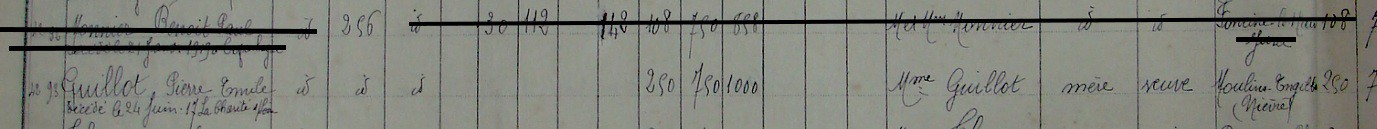 Monnier Benoit Paul id 256 id 30 112 142 108 750 858 Mr et Mme Monnier id id Fontaine 108 7
décédé le
93 Guillot Pierre Emile id id id 250 750 1000 Mme Guillot mère veuve Moulins-Engilbt 250 7
décédé le 24 Juin-17 La Charité s/Loire (Nièvre)